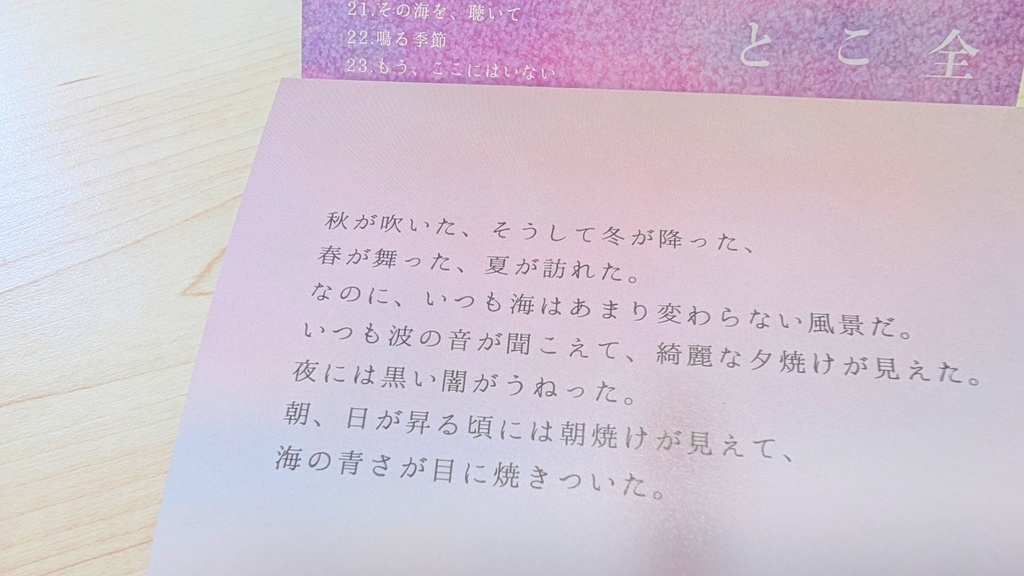 21.その海を、聴いて
22.鳴る季節
23.もう、ここにはいない
とこ全
秋が吹いた、そうして冬が降った、
春が舞った、夏が訪れた。
なのに、いつも海はあまり変わらない風景だ。
いつも波の音が聞こえて、綺麗な夕焼けが見えた。
夜には黒い闇がうねった。
朝、日が昇る頃には朝焼けが見えて、
海の青さが目に焼きついた。